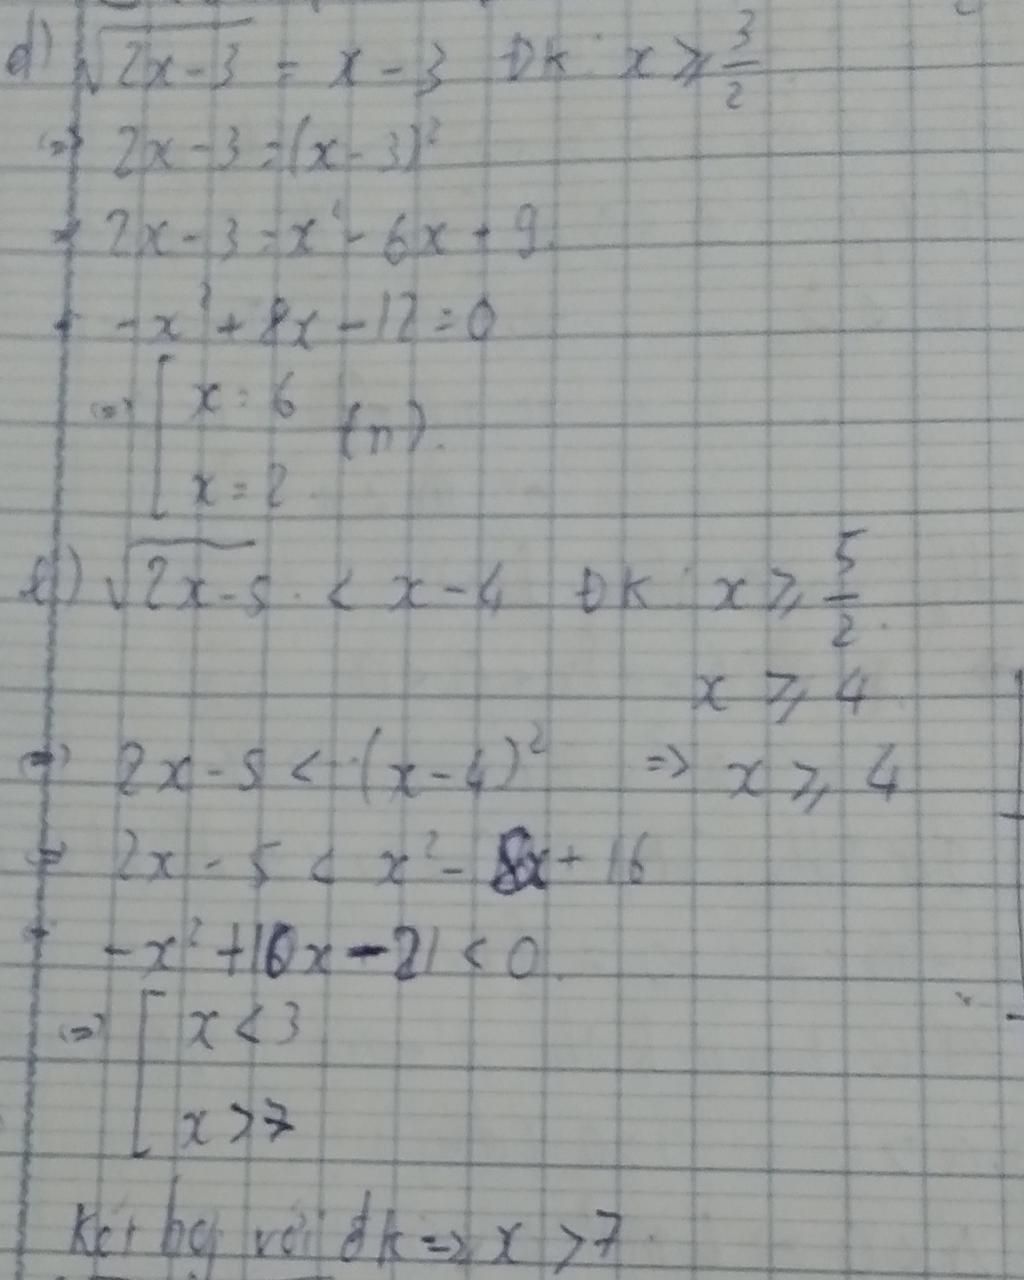 d) √(2x-3) = x - 3 ĐK: x ≥ 3/2
⇔ 2x - 3 = (x - 3)²
⇔ 2x - 3 = x² - 6x + 9
⇔ -x² + 8x - 12 = 0
⇔ [ x = 6 (n).
x = 2
√(2x-5) < x - 4 ĐK: x ≥ 5/2
x ≥ 4
⇔ 2x - 5 < (x - 4)² => x ≥ 4
⇔ 2x - 5 < x² - 8x + 16
-x² + 10x - 21 < 0
⇔ [ x < 3
x > 7
Kết hợp với đk => x > 7